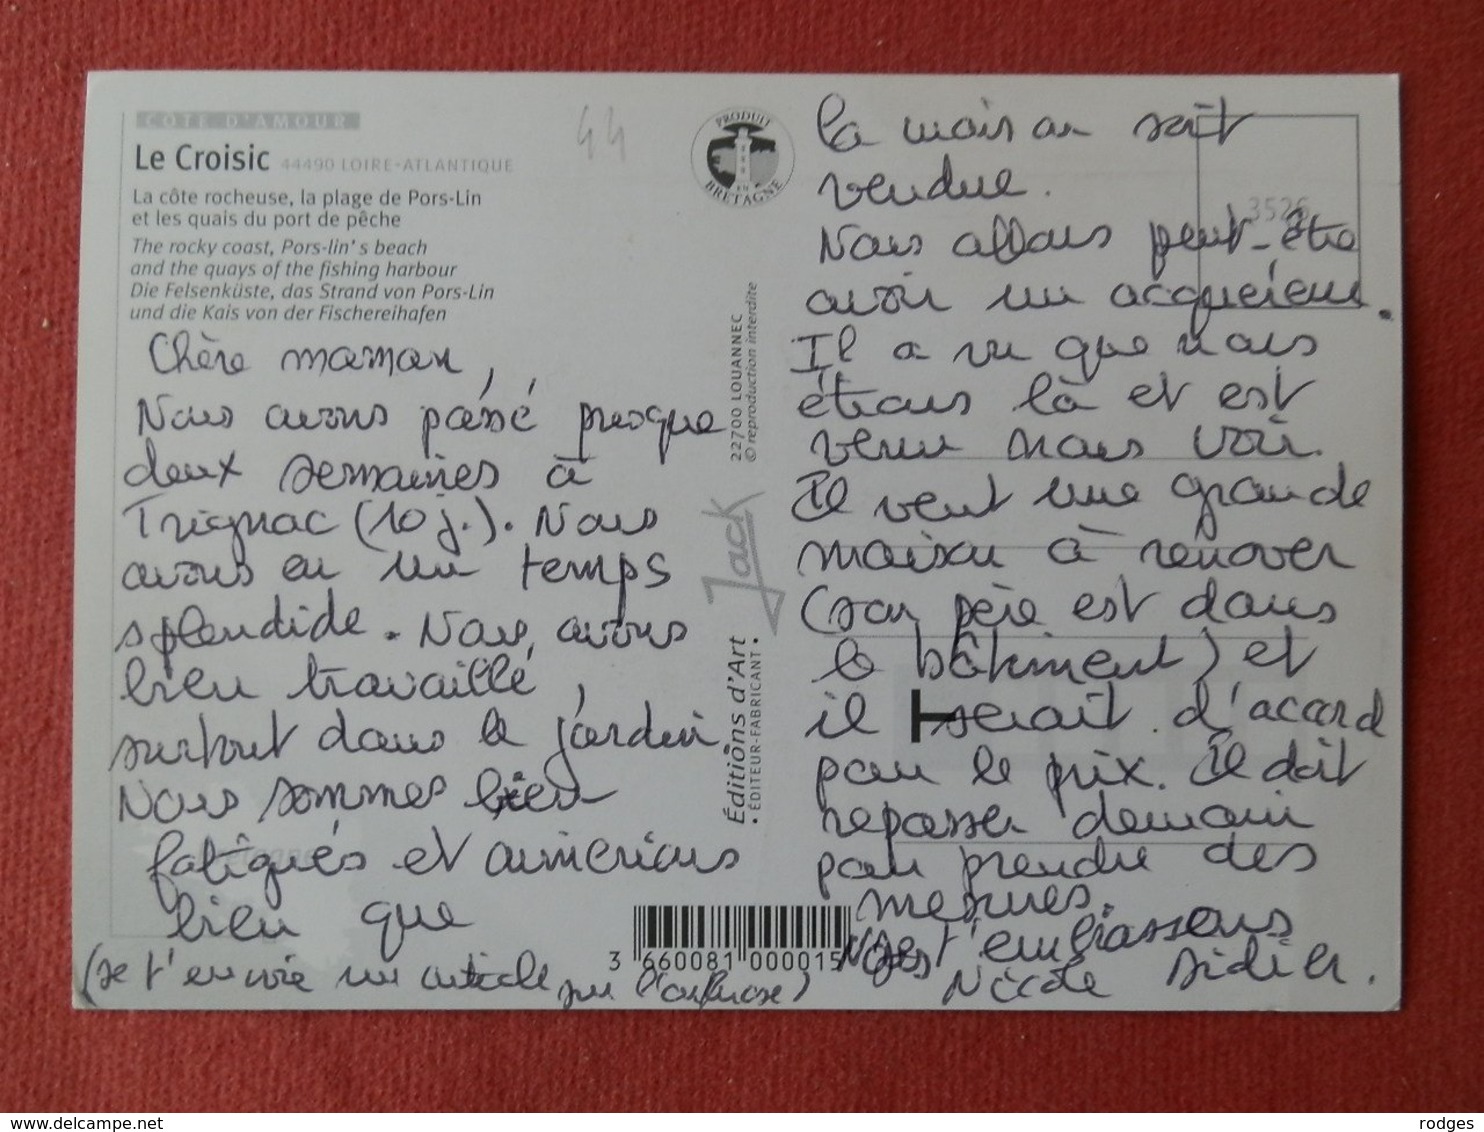 CÔTE D'AMOUR
Le Croisic 44490 LOIRE-ATLANTIQUE
La côte rocheuse, la plage de Pors-Lin
et les quais du port de pêche
The rocky coast, Pors-lin' s beach
and the quays of the fishing harbour
Die Felsenküste, das Strand von Pors-Lin
und die Kais von der Fischereihafen
44
PRODUIT
EN
BRETAGNE
Chère maman,
Nous avons passé presque
deux semaines à
Trignac (10 j.). Nous
avons eu un temps
splendide. Nous avons
bien travaillé,
surtout dans le jardin
Nous sommes bien
fatigués et aimerions
bien que
(Je t'envoie un article sur l'arthrose)
22700 LOUANNEC
© reproduction interdite
Jack
Éditions d'Art
• ÉDITEUR-FABRICANT •
3 660081 000015
3526
la maison soit
vendue.
Nous allons peut-être
avoir un acquéreur.
Il a vu que nous
étions là et est
venu nous voir.
Il veut une grande
maison à rénover
(son père est dans
le bâtiment) et
il serait d'accord
pour le prix. Il doit
repasser demain
pour prendre des
mesures.
Nous t'embrassons
Nicole Didier.
rodges
delcampe.net